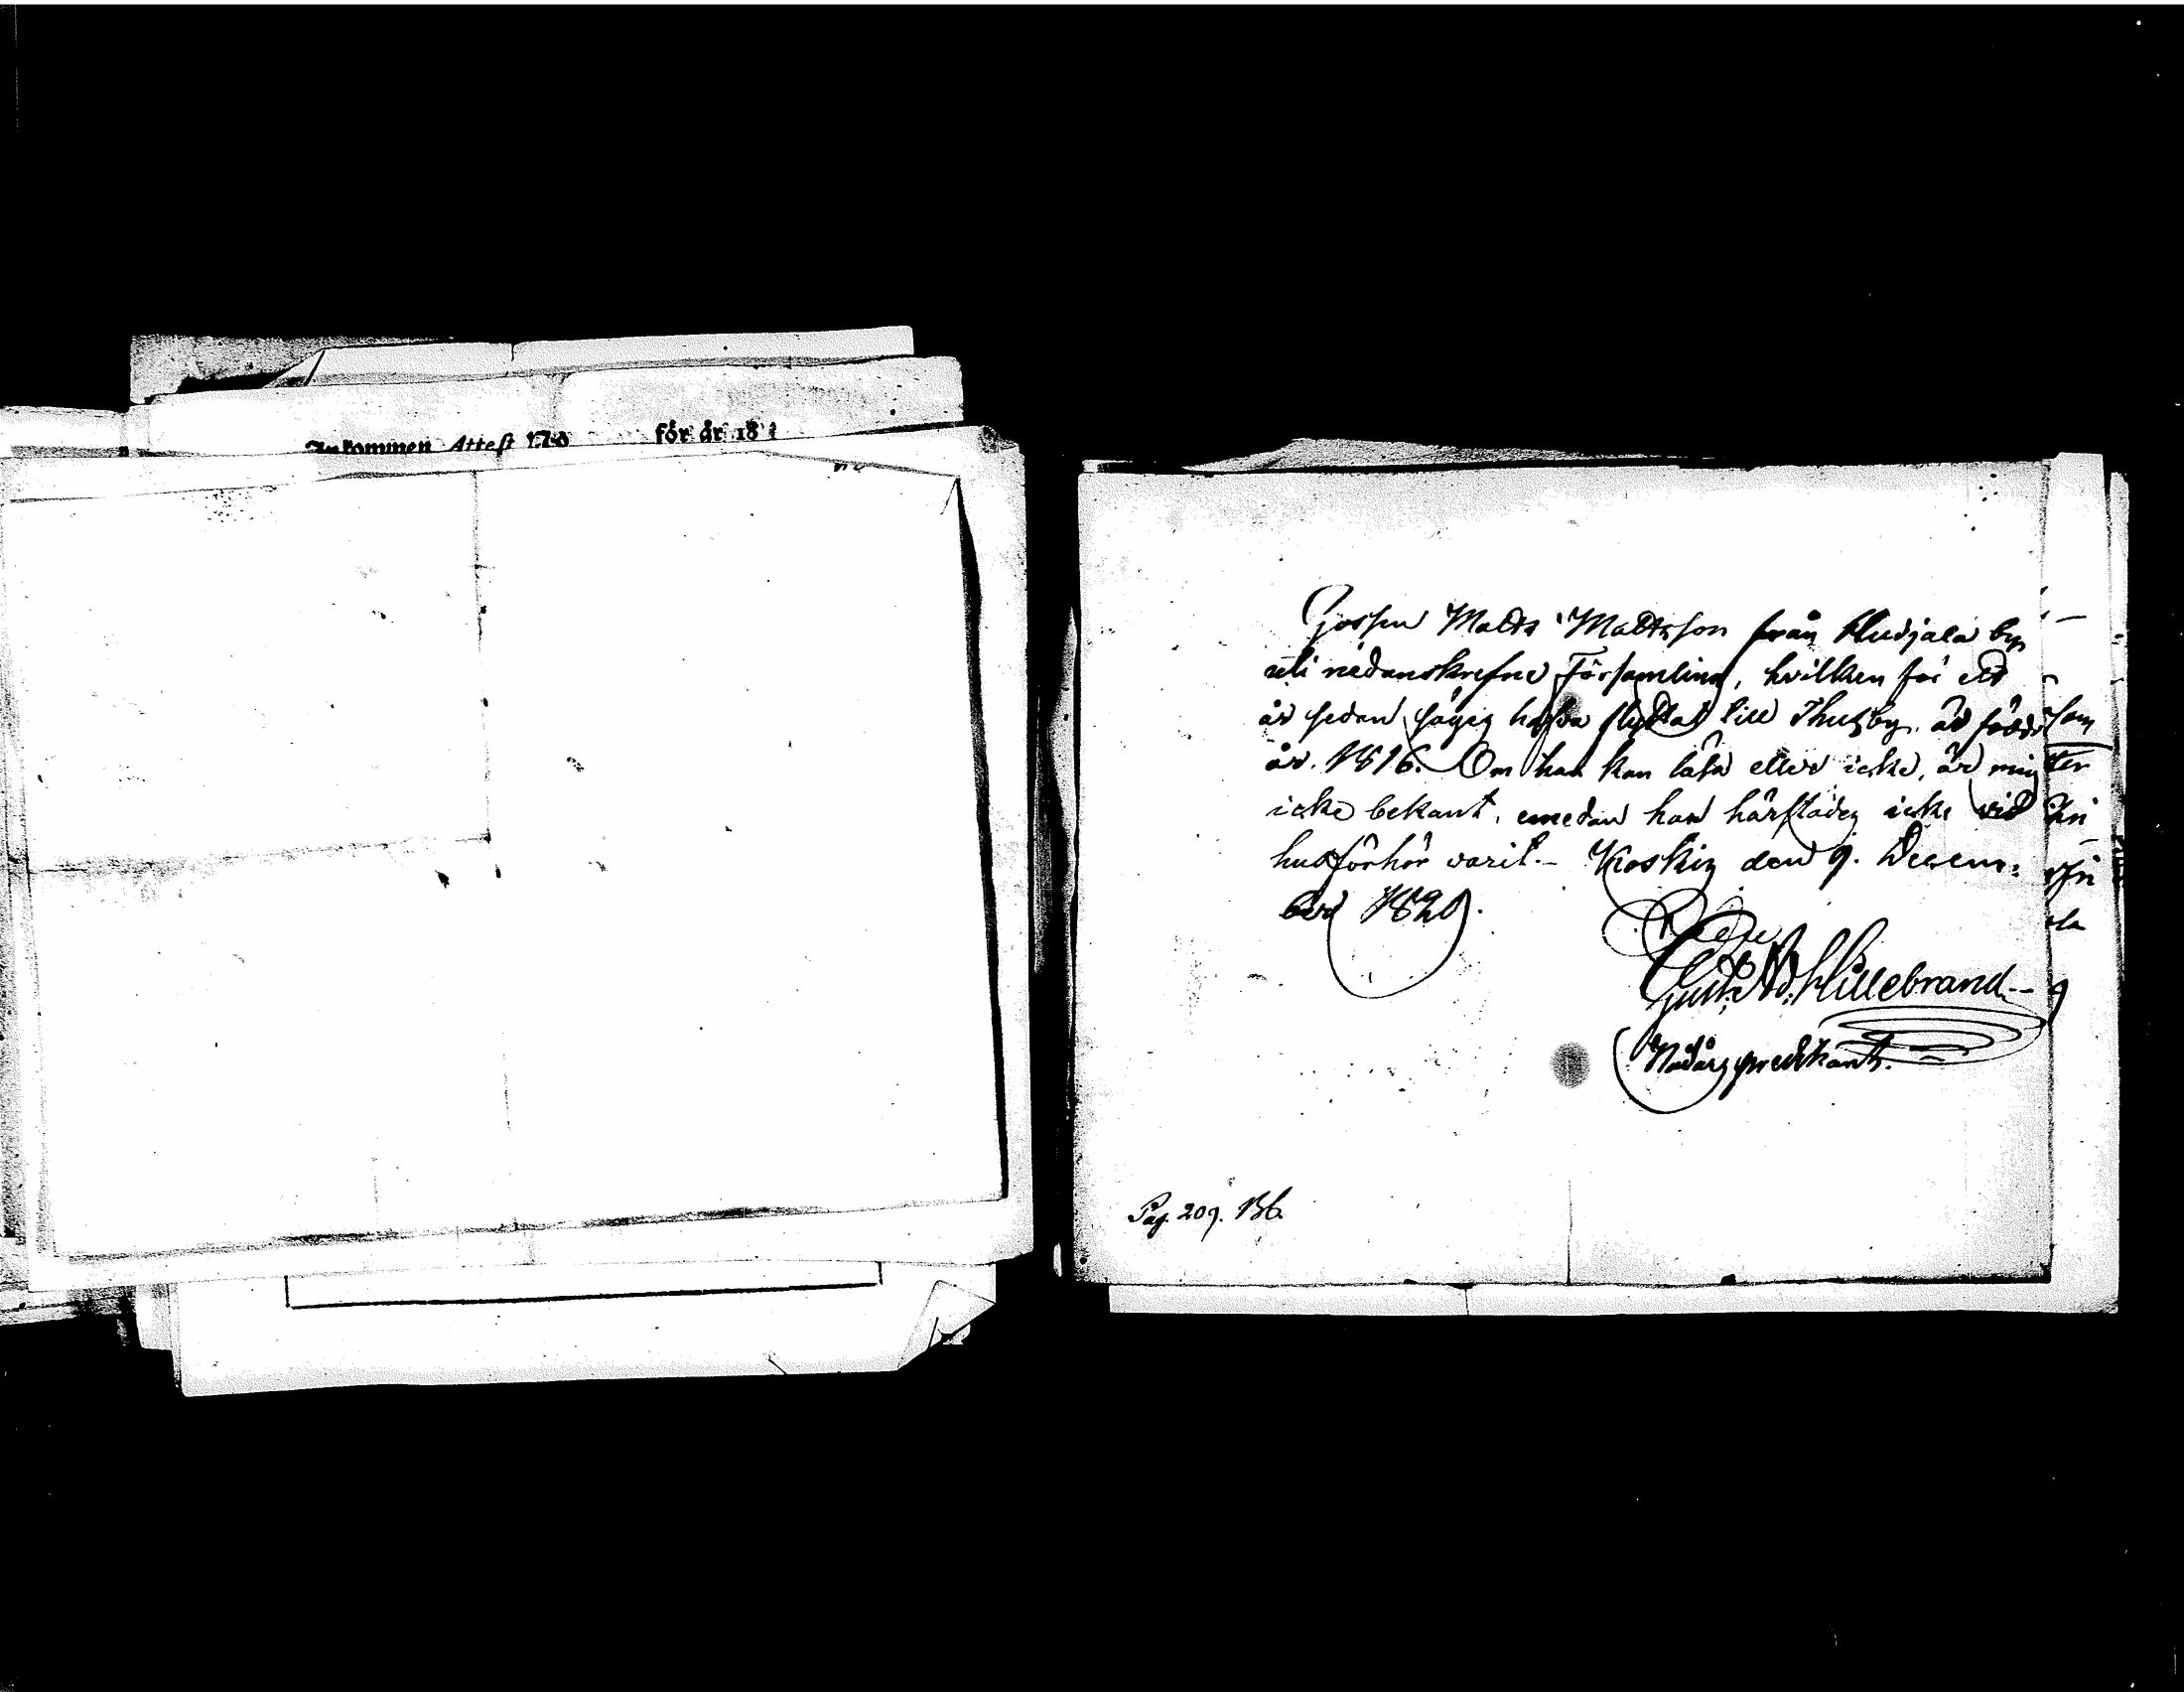 Inkommen Attest N:o för år 18
Gossen Matts Mattsson från Hudjala by
uti nedanskrefne Församling, hvilken för ett
år sedan säges hafva flyttat till Thusby, är född
år 1816. Om han kan läsa eller icke, är mig
icke bekant, emedan han härstädes icke vid
husförhör varit.- Koskis den 9. Decem:
ber 1829.
Gust: Ad: Hillebrand
Nådårspredikant.
Pag. 209. 136.
som
ter